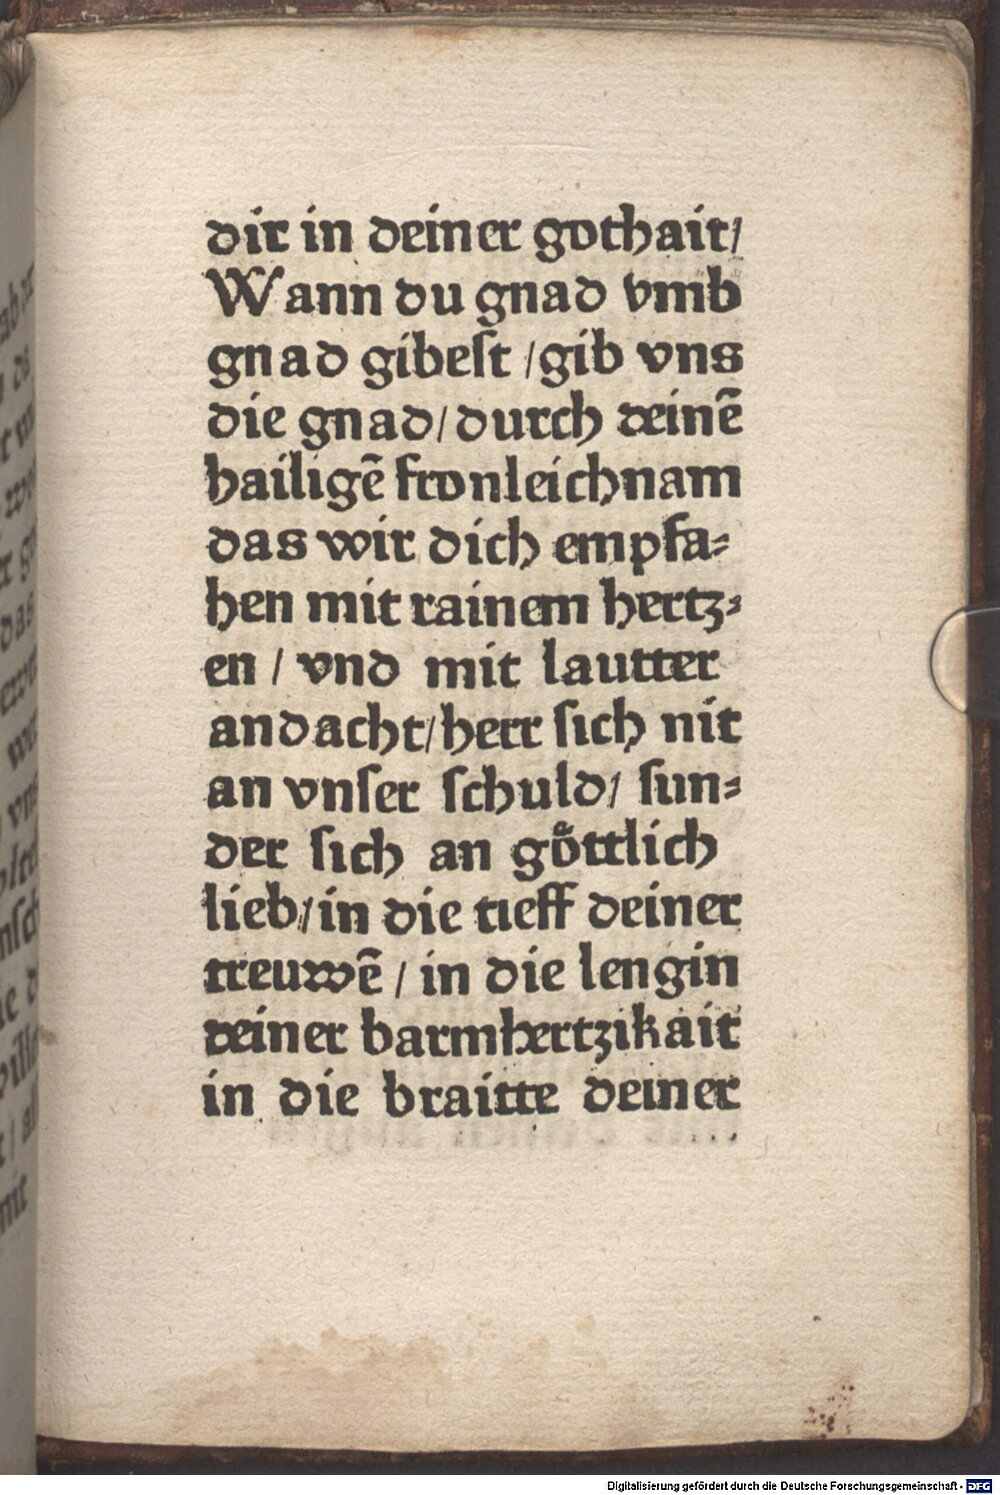 dir in deiner gothait/
Wann du gnad vmb
gnad gibeſt /gib vns
die gnad/durch deinē
hailigē fronleichnam
das wir dich empfa⸗
hen mit rainem hertz⸗
en / vnd mit lautter
andacht/herr ſich nit
an vnſer ſchuld/ ſun⸗
der ſich an goͤttlich
lieb/in die tieff deiner
treuwē / in die lengin
deiner barmhertzikait
in die braitte deiner
Digitalisierung gefördert durch die Deutsche Forschungsgemeinschaft - DFG